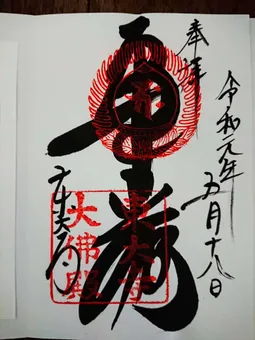 奉拝
令和元年五月十八日
華厳
東大寺
東大寺
大佛殿